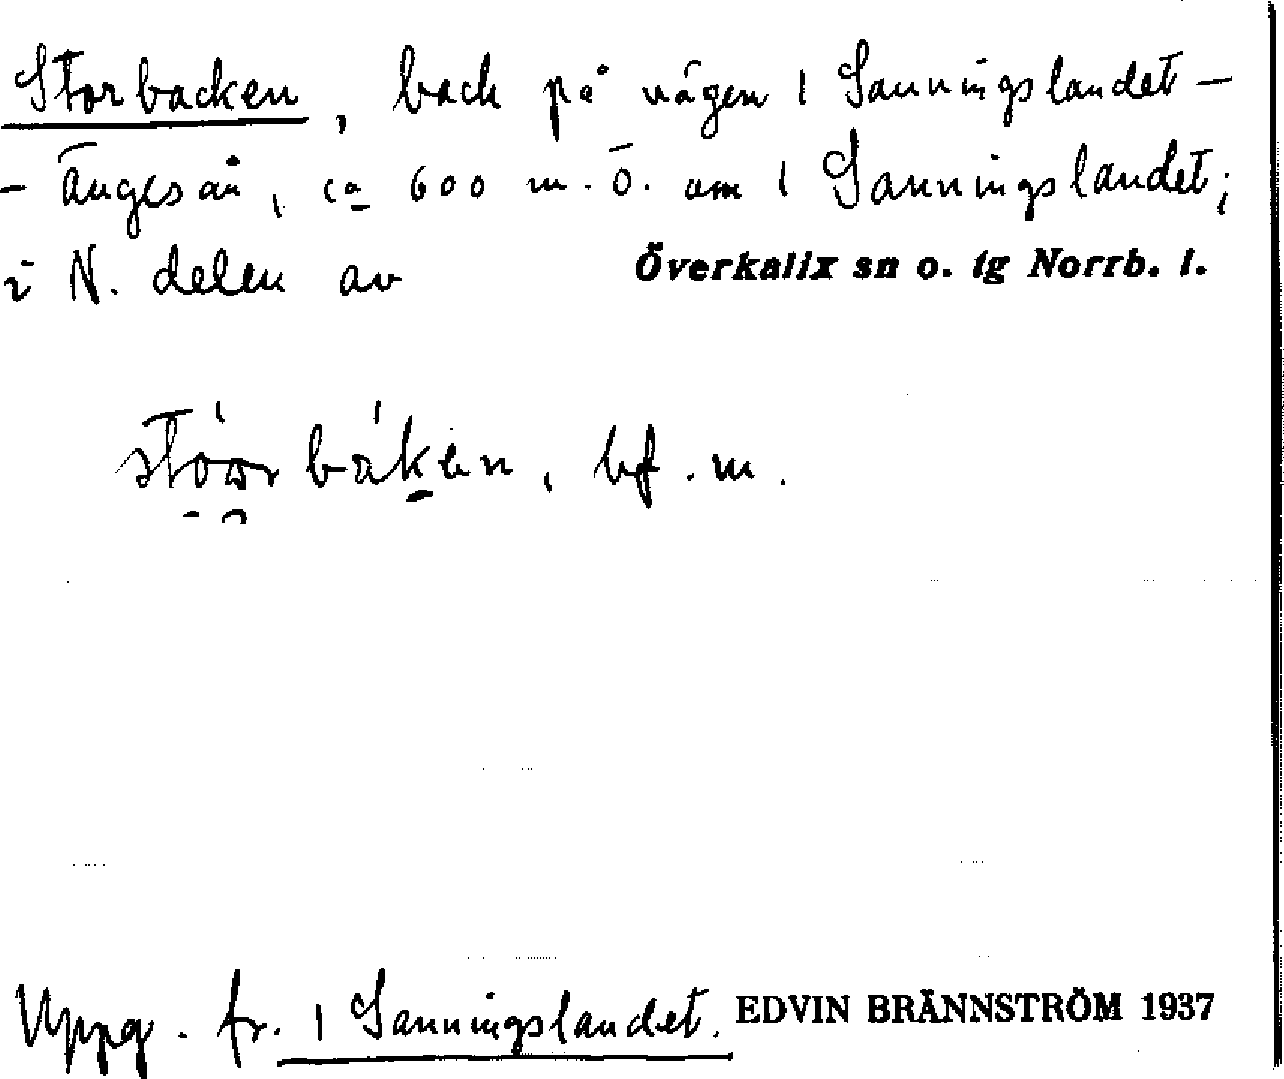 Storbacken, back på vägen 1 Sanningslandet –
– Ängesån, ca 600 m. Ö. om 1 Sanningslandet;
i N. delen av Överkalix sn o. tg Norrb. l.
bf. m.
Uppg. fr. 1 Sanningslandet. EDVIN BRÄNNSTRÖM 1937